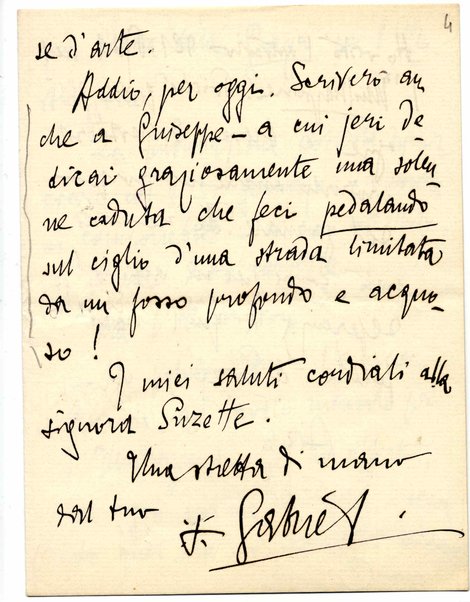 4
se d'arte.
Addio, per oggi. Scriverò an
che a Giuseppe – a cui jeri de
dicai graziosamente una solen
ne caduta che feci pedalando
sul ciglio d'una strada limitata
da un fosso profondo e acquo-
so!
I miei saluti cordiali alla
signora Suzette.
Una stretta di mano
dal tuo
Gabriel.